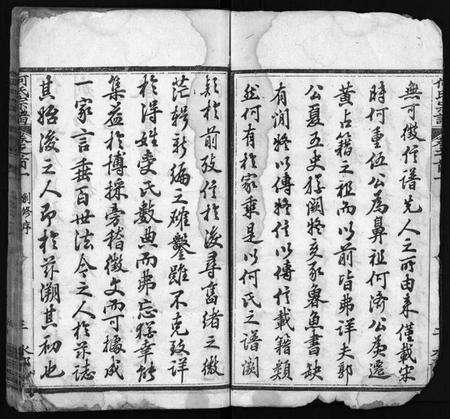 無可徵信譜先人之所由来僅載宋
時何重伍公為鼻祖何济公
黄占籍之祖而以前皆弗详夫郭
公夏五史猶闕疑亥豕魯魚書缺
有間将以傳疑信以傳信載籍類
然何有於家乘是以何氏之譜闕
疑於前攷信於後尋富緒之微
茫稱新編之難鑿雖不克致详
於得姓受氏數典而弗忘聊幸能
集益於博採旁稽徵文而可據成
一家言垂百世法令之人於兹誌
其始後之人即於兹溯其初也
何氏宗譜
創修序
三